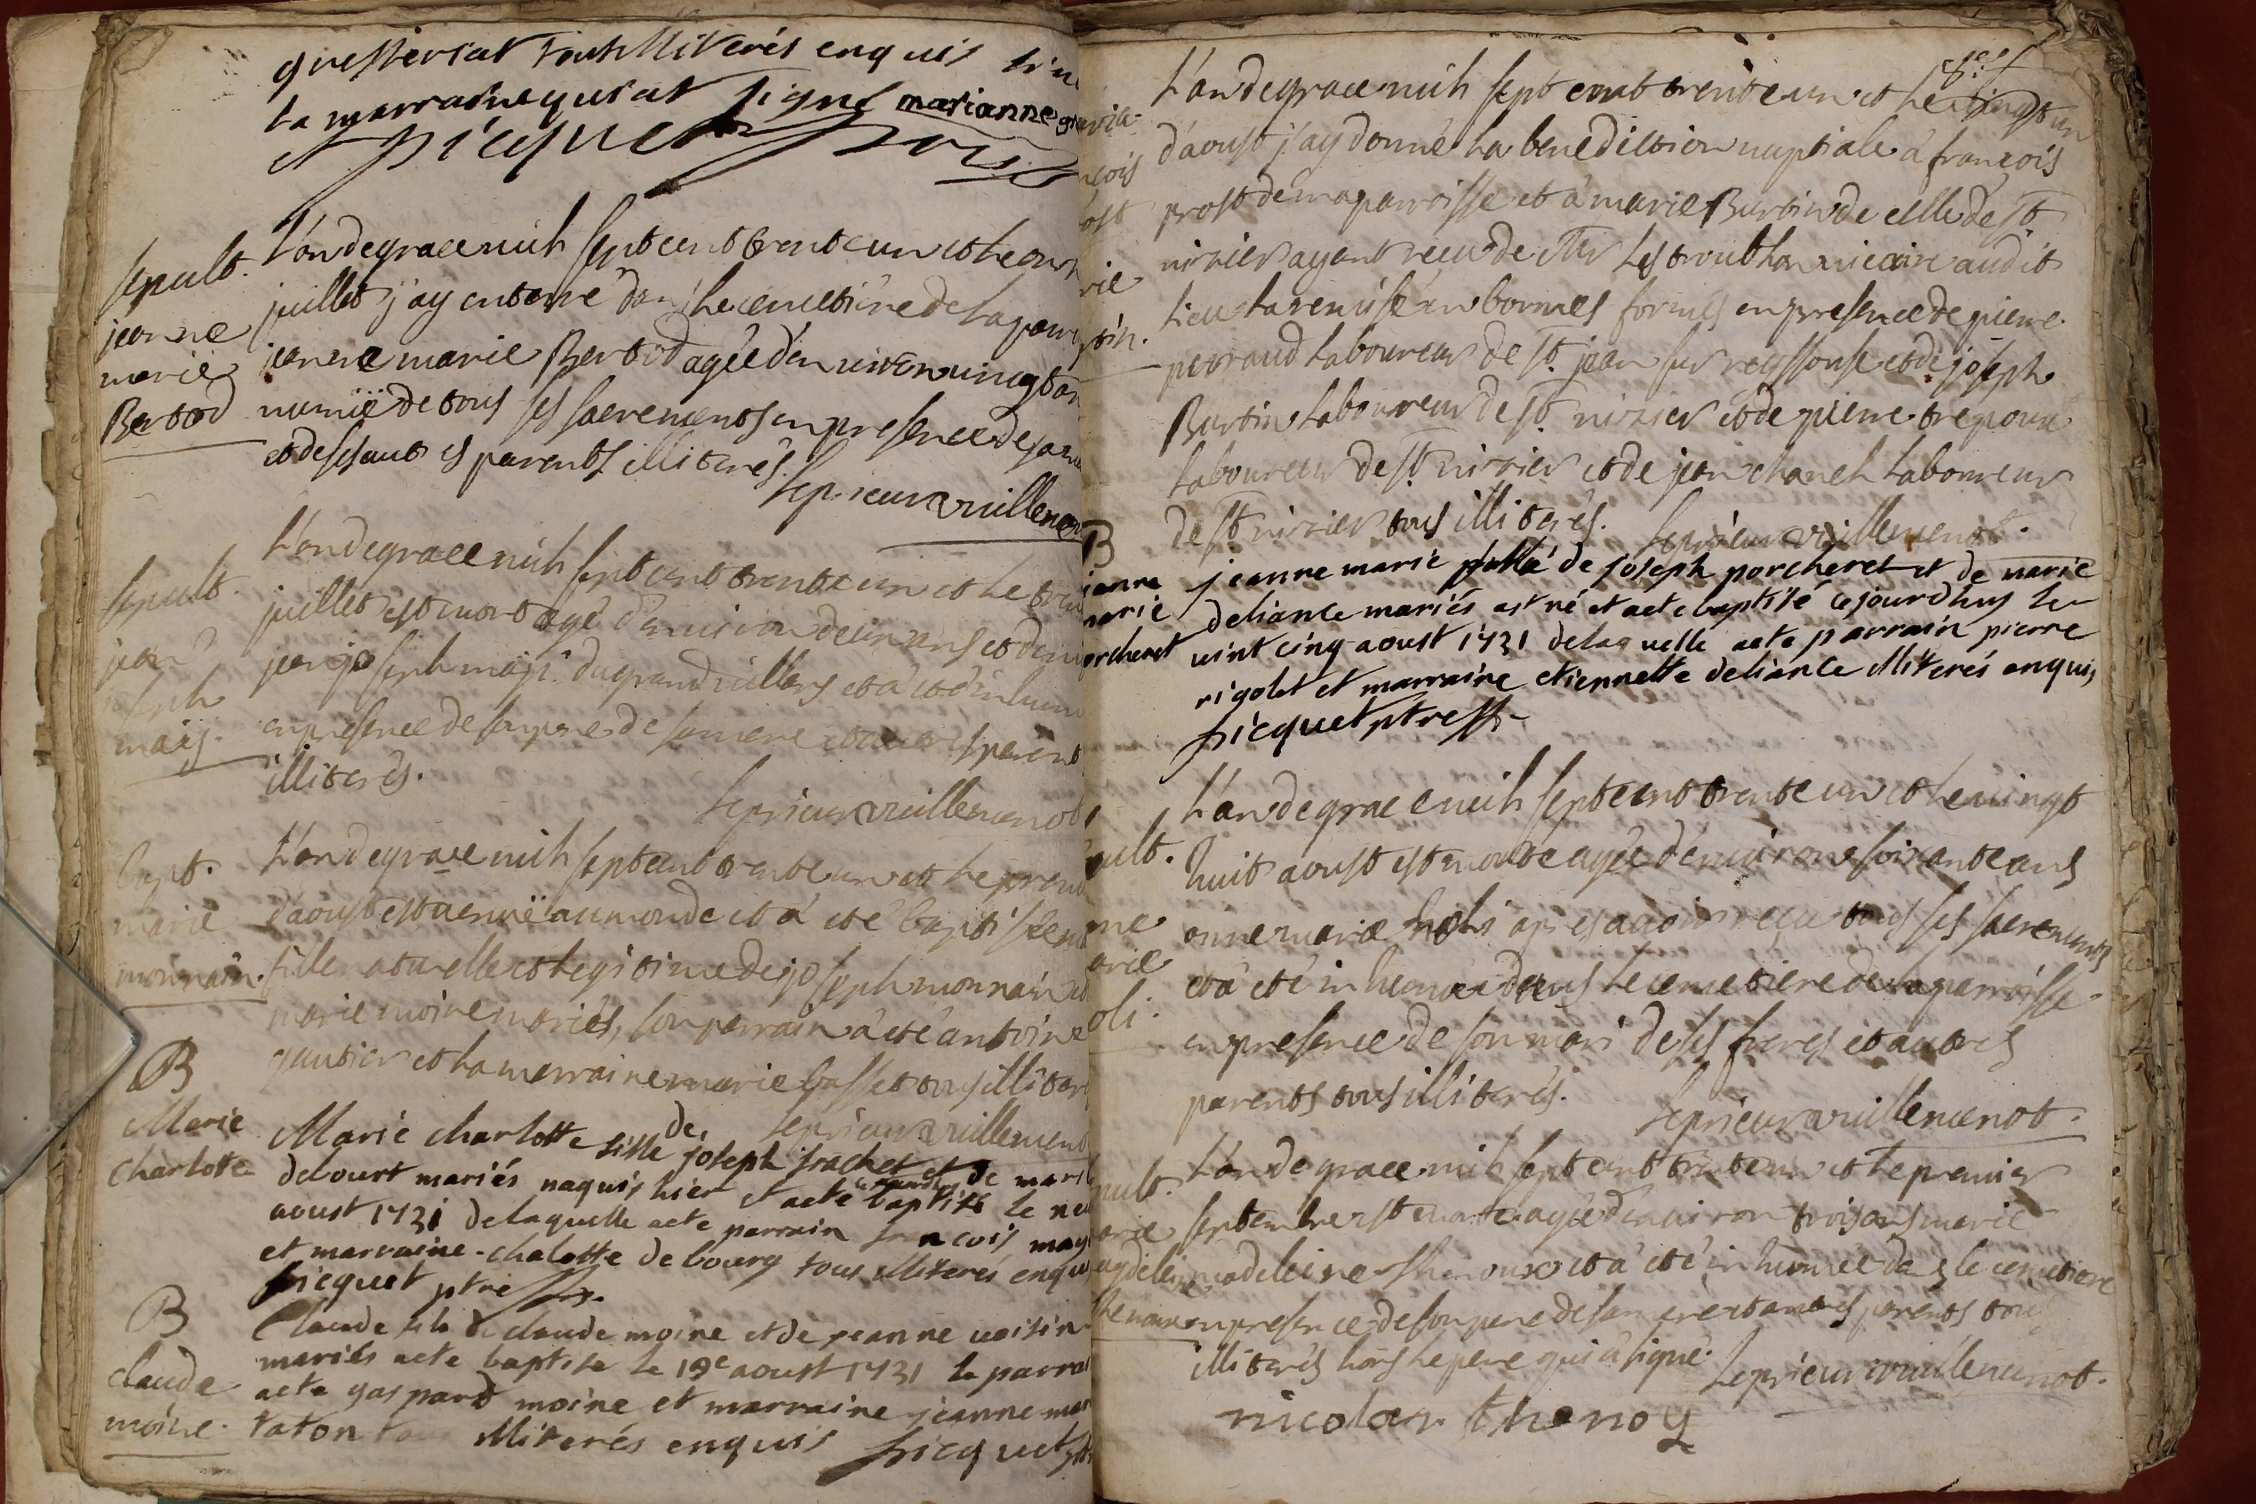 questeriat tous illiterés enquis
la marraine qui at signé marianne
et picquet
sepult.
jeanne
marie
Bertod
L'an de grace mil sept cent trente un et le onz
juillet j'ay enterré dans le cemetière de la parr
jeanne marie Bertod agée d'environ vingt an
munië de tous ses sacrements en presence de
et de ses autres parents illiterés.
le prieur vuillemenot
sepult.
jean
joseph
maij.
L'an de grace mil sept cent trente un et le
juillet est mort agé d'environ deux ans et demi
jean joseph maji du grand villars et a eté inhum
en presence de son pere de sa mere et autres parent
illiterés.
le prieur vuillemenot
bapt.
marie
monnain.
L'an de grace mil sept cent trente un et le prem
d'aoust est venuë au monde et a eté baptisée
fille naturelle et legitime de joseph monnain
marie moine mariés, son parrain a eté antoine
gautier et la marraine marie basset tous illiter
le prieur vuillemenot
B
Marie
Charlotte
Marie charlotte fille de joseph frachet et de marie
debourt mariés naquis hier et a eté baptisé le
aoust 1731 de laquelle a eté parrain francois
et marraine chalotte de bourg tous illiterés enquis
picquet ptre
B
claude
moine.
Claude fils de claude moine et de jeanne voisin
mariés a eté baptisé le 19e aoust 1731 le parra
a eté gaspard moine et marraine jeanne mar
taton illiterés enquis picquet
L'an de grace mil sept cent trente un et le vingt un
d'aoust j'ay donné la benediction nuptiale à françois
prost de ma parroisse et à marie Burtin de celle de st
nizier ayant receu de vicaire audit
lieu la remise en bonnes formes en presence de pierre
perraud laboureur de st. jean sur reyssouse et de joseph
Burtin laboureur de st nizier et de pierre
laboureur de st nizier et de jean chanel laboureur
de st nizier tous illiterés. le prieur vuillemenot.
B
jeanne
marie
porcheret
jeanne marie fille de joseph porcheret et de marie
deliance mariés est né et a eté baptisé ce jourdhuy le
vint cinq aoust 1731 de laquelle a eté parrain pierre
rigolet et marraine etiennette deliance illiterés enquis,
picquet ptre
L'an de grace mil sept cent trente un et le vingt
huit aoust est morte agée d'environ soixante ans
anne marie holi après avoir receu tous ses sacrements
et a eté inhumée dans le cemetiere de la parroisse
en presence de son mari de ses freres et autres
parents tous illiterés. le prieur vuillemenot.
L'an de grace mil sept cent trente un et le premier
septembre est morte agée d'environ trois ans marie
madeleine thenoux et a eté inhumée dans le cemetiere
en presence de son pere de sa mere et autres parents tous
illiterés hors le pere qui a signé. le prieur vuillemenot.
nicolas thenoy